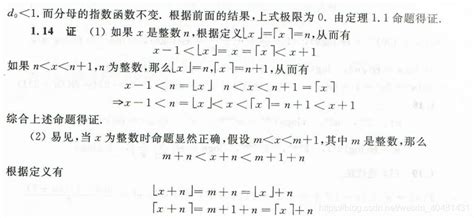 d₀<1.而分母的指数函数不变. 根据前面的结果,上式极限为 0. 由定理 1.1 命题得证.
1.14 证 (1) 如果 x 是整数 n,根据定义⌊x⌋=⌈x⌉=n,从而有
x-1<⌊x⌋=x=⌈x⌉<x+1
如果 n<x<n+1,n 为整数,那么⌊x⌋=n,⌈x⌉=n+1,从而有
x-1<n=⌊x⌋ n<x<n+1=⌈x⌉
⇒x-1<n=⌊x⌋<x<⌈x⌉=n+1<x+1
综合上述命题得证.
(2) 易见,当 x 为整数时命题显然正确,假设 m<x<m+1,其中 m 是整数,那么
m+n<x+n<m+1+n
根据定义有
⌊x+n⌋=m+n=⌊x⌋+n
⌈x+n⌉=m+1+n=⌈x⌉+n